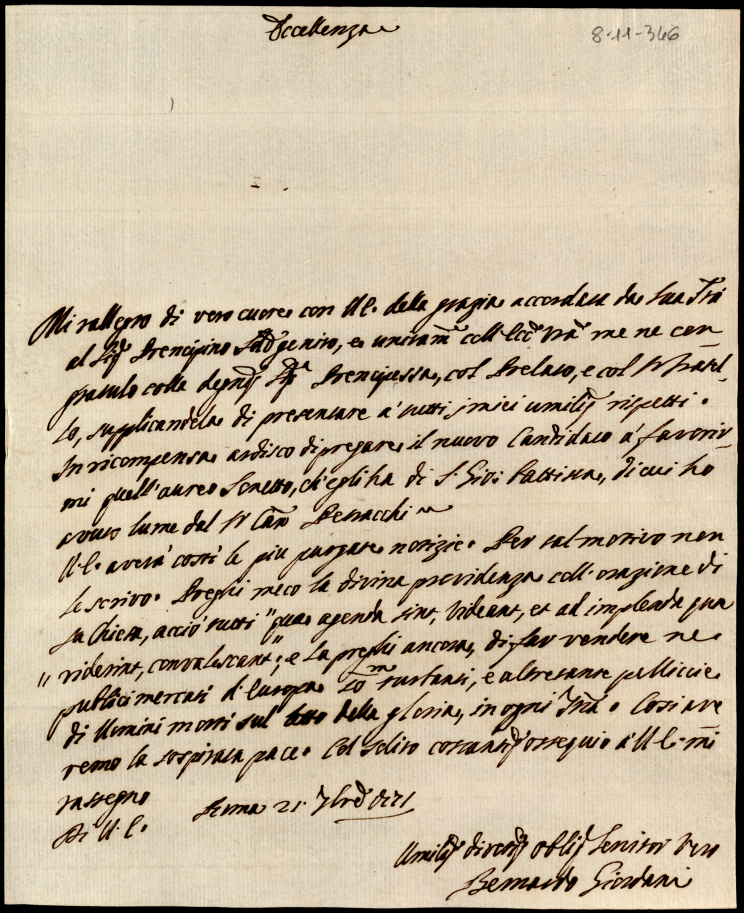 Eccellenza
8-11-346
Mi rallegro di vero cuore con V.E. della grazia accordata da Sua
al Sigr Prencipino e unitamte coll' me ne con
gratulo colla degnma Sigra Prencipessa, col Prelato, e col Sr Fratel
lo, supplicandola di presentare à tutti i miei umilmi rispetti.
In ricompensa ardisco di pregare il nuovo Candidato à favorir
mi quell'aureo Sonetto, ch'egli ha di S. Giō: Battista, di cui ho
avuto lume dal Sr
V.E. averà costì le più purgate notizie. Per tal motivo non
le scrivo. Preghi meco la divina providenza coll'orazione di
Sta Chiesa, acciò tutti "quae agenda sint, videant, et ad implenda quae
"viderint, convalescant"; e la preghi ancora, di far vendere ne
publici mercati d'Europa tustanti, e altretante pelliccie
di Uomini morti sul letto della gloria, in ogni Così ave
remo la sospirata pace. Col solito ossequio à V.E. mi
rassegno
Di V.E. Roma 21. 7bre
Umilmo divmo oblmo Servitor vero
Bernardo Giordani